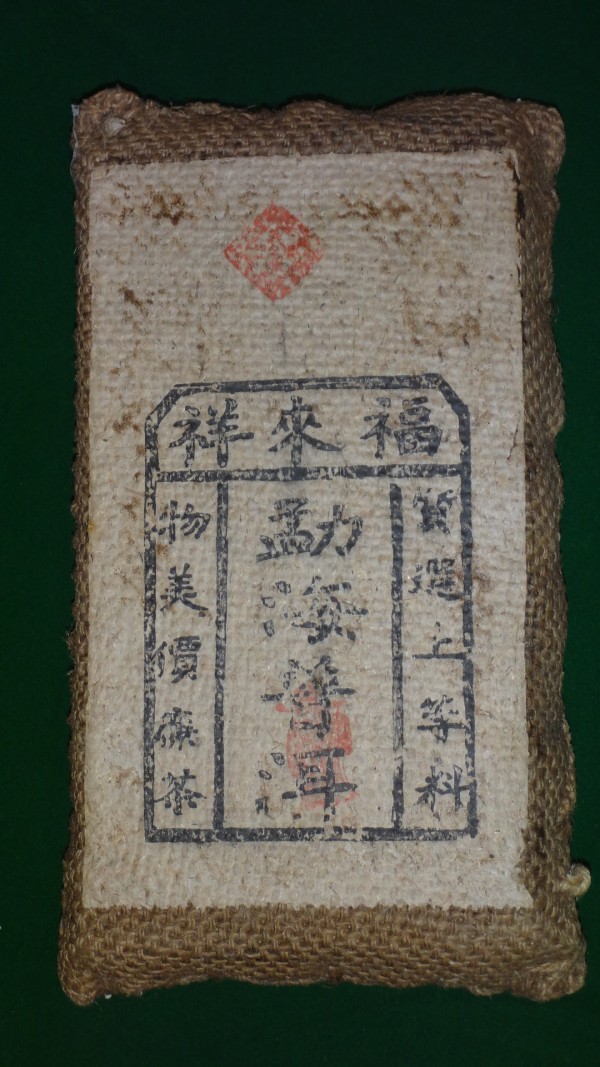 福來祥
選上等料
勐海普洱
物美價廉茶